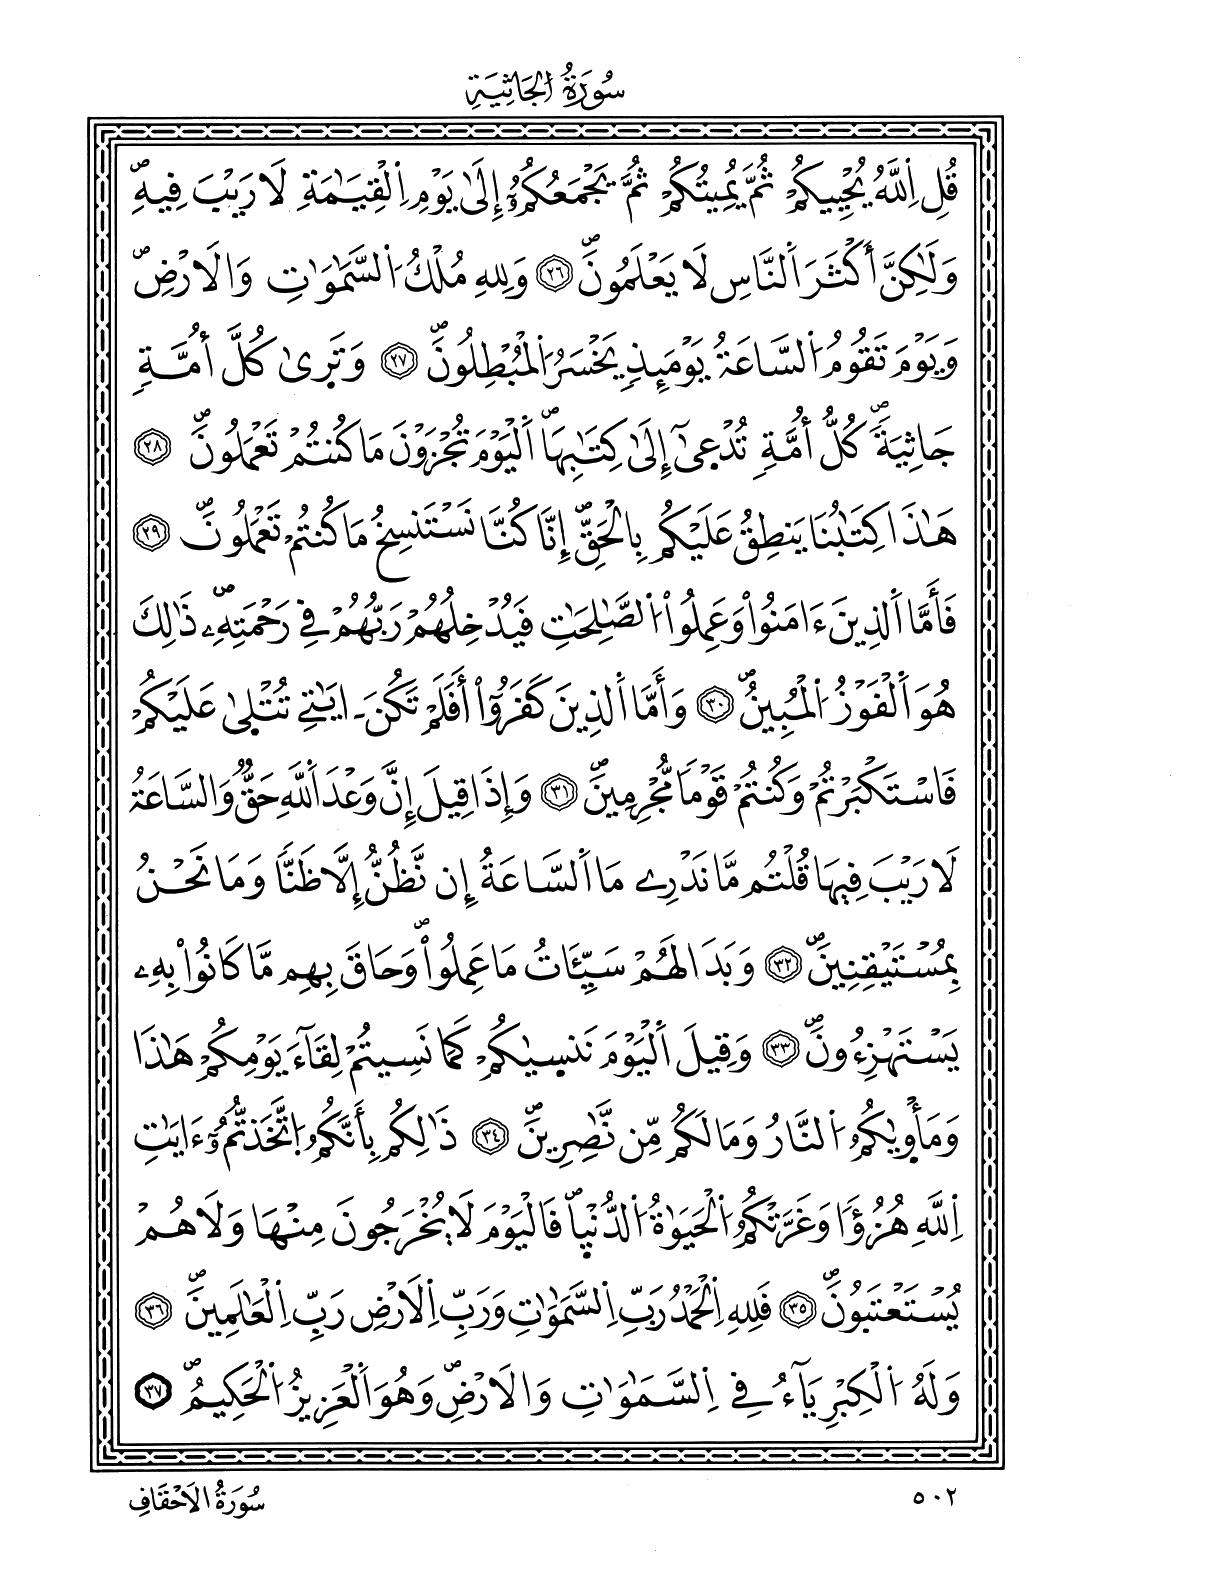 سُورَةُ الْجَاثِيَةِ
قُلِ اِ۬للَّهُ يُحْيِيكُمْ ثُمَّ يُمِيتُكُمْ ثُمَّ يَجْمَعُكُمُۥٓ إِلَىٰ يَوْمِ اِ۬لْقِيَٰمَةِ لَا رَيْبَ فِيهِۖ
وَلَٰكِنَّ أَكْثَرَ اَ۬لنَّاسِ لَا يَعْلَمُونَۖ ٢٦ وَلِلهِ مُلْكُ اُ۬لسَّمَٰوَٰتِ وَالَارْضِۖ
وَيَوْمَ تَقُومُ اُ۬لسَّاعَةُ يَوْمَئِذٖ يَخْسَرُ اُ۬لْمُبْطِلُونَۖ ٢٧ وَتَر۪ىٰ كُلَّ أُمَّةٖ
جَاثِيَةٗۖ كُلُّ أُمَّةٖ تُدْع۪ىٰٓ إِلَىٰ كِتَٰبِهَاۖ اَ۬لْيَوْمَ تُجْزَوْنَ مَا كُنتُمْ تَعْمَلُونَۖ ٢٨
هَٰذَا كِتَٰبُنَا يَنطِقُ عَلَيْكُم بِالْحَقِّۖ إِنَّا كُنَّا نَسْتَنسِخُ مَا كُنتُمْ تَعْمَلُونَۖ ٢٩
فَأَمَّا اَ۬لذِينَ ءَامَنُواْ وَعَمِلُواْ اُ۬لصَّٰلِحَٰتِ فَيُدْخِلُهُمْ رَبُّهُمْ فِي رَحْمَتِهِۦۖ ذَٰلِكَ
هُوَ اَ۬لْفَوْزُ اُ۬لْمُبِينُۖ ٣٠ وَأَمَّا اَ۬لذِينَ كَفَرُوٓاْ أَفَلَمْ تَكُنَ ايَٰتِے تُتْل۪ىٰ عَلَيْكُمْ
فَاسْتَكْبَرْتُمْ وَكُنتُمْ قَوْماٗ مُّجْرِمِينَۖ ٣١ وَإِذَا قِيلَ إِنَّ وَعْدَ اَ۬للَّهِ حَقّٞ وَالسَّاعَةُ
لَا رَيْبَ فِيهَا قُلْتُم مَّا نَدْرِے مَا اَ۬لسَّاعَةُ إِن نَّظُنُّ إِلَّا ظَنّاٗ وَمَا نَحْنُ
بِمُسْتَيْقِنِينَۖ ٣٢ وَبَدَا لَهُمْ سَيِّـَٔاتُ مَا عَمِلُواْۖ وَحَاقَ بِهِم مَّا كَانُواْ بِهِۦ
يَسْتَهْزِءُونَۖ ٣٣ وَقِيلَ اَ۬لْيَوْمَ نَنس۪يٰكُمْ كَمَا نَسِيتُمْ لِقَآءَ يَوْمِكُمْ هَٰذَا
وَمَأْو۪يٰكُمُ اُ۬لنَّارُ وَمَا لَكُم مِّن نَّٰصِرِينَۖ ٣٤ ذَٰلِكُم بِأَنَّكُمُ اُ۪تَّخَذتُّمُۥٓ ءَايَٰتِ
اِ۬للَّهِ هُزُؤاٗ وَغَرَّتْكُمُ اُ۬لْحَيَوٰةُ اُ۬لدُّنْي۪اۖ فَالْيَوْمَ لَا يُخْرَجُونَ مِنْهَا وَلَا هُمْ
يُسْتَعْتَبُونَۖ ٣٥ فَلِلهِ اِ۬لْحَمْدُ رَبِّ اِ۬لسَّمَٰوَٰتِ وَرَبِّ اِ۬لَارْضِ رَبِّ اِ۬لْعَٰلَمِينَۖ ٣٦
وَلَهُ اُ۬لْكِبْرِيَآءُ فِي اِ۬لسَّمَٰوَٰتِ وَالَارْضِۖ وَهُوَ اَ۬لْعَزِيزُ اُ۬لْحَكِيمُۖ ٣٧
٥٠٢
سُورَةُ الَاحْقَافِ